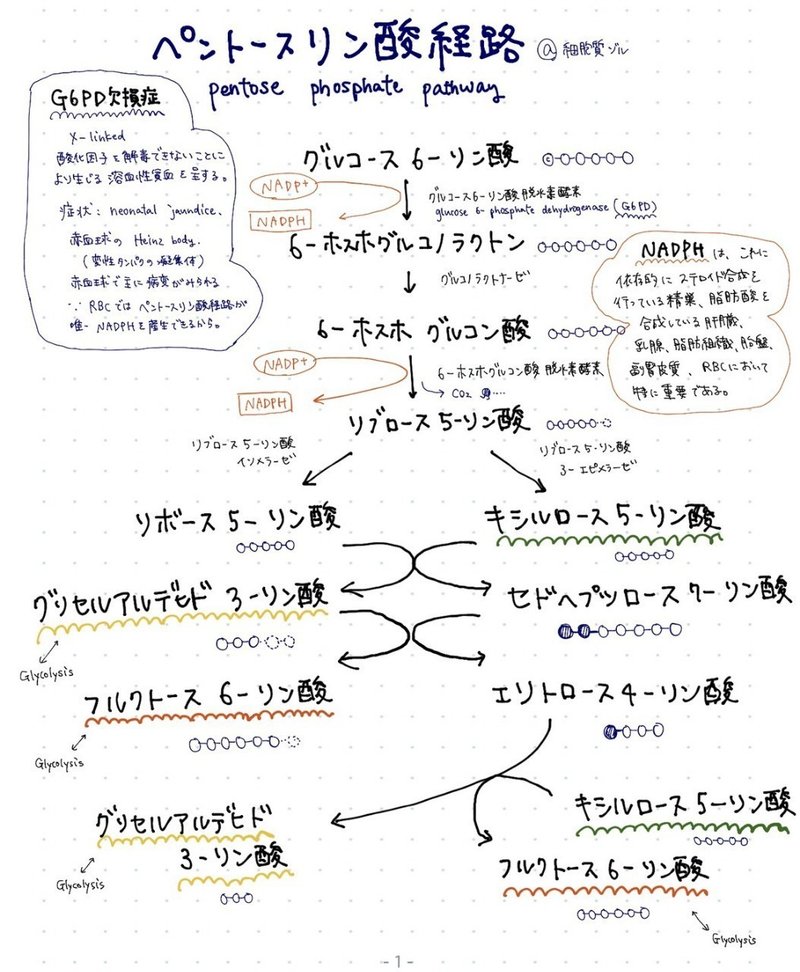 ペントースリン酸経路 @細胞質ゾル
pentose phosphate pathway
G6PD欠損症
X-linked
酸化因子を解毒できないことに
より生じる溶血性貧血を呈する。
症状：neonatal jaundice、
赤血球のHeinz body.
(変性タンパクの凝集体)
赤血球で主に病変がみられる
∵ RBCではペントースリン酸経路が
唯一NADPHを産生できるから。
グルコース 6-リン酸
NADP+
NADPH
グルコース6-リン酸 脱水素酵素
glucose 6-phosphate dehydrogenase (G6PD)
6-ホスホグルコノラクトン
グルコノラクトナーゼ
NADPH は、これに
依存的にステロイド合成を
行っている精巣、脂肪酸を
合成している肝臓、
乳腺、脂肪組織、胎盤、
副腎皮質、RBCにおいて
特に重要である。
6-ホスホ グルコン酸
NADP+
NADPH
6-ホスホグルコン酸 脱水素酵素
CO2
リブロース 5-リン酸
リブロース 5-リン酸
イソメラーゼ
リブロース 5-リン酸
3-エピメラーゼ
リボース 5-リン酸
キシルロース 5-リン酸
グリセルアルデヒド 3-リン酸
セドヘプツロース 7-リン酸
Glycolysis
フルクトース 6-リン酸
エリトロース 4-リン酸
Glycolysis
グリセルアルデヒド
3-リン酸
キシルロース 5-リン酸
Glycolysis
フルクトース 6-リン酸
Glycolysis
- 1 -